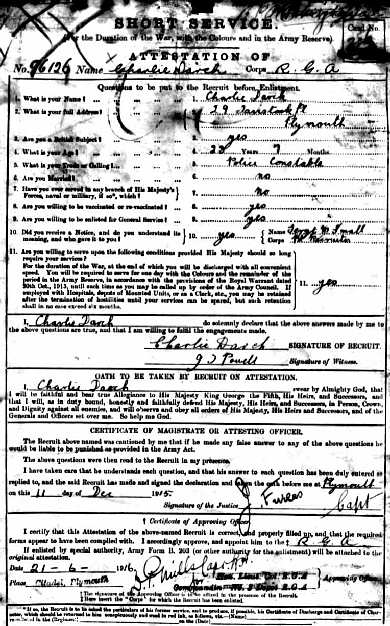 SHORT SERVICE.
(For the Duration of the War, with the Colours and in the Army Reserve).
ATTESTATION OF
No. 96126 Name Charlie Darch Corps R. G. A
Questions to be put to the Recruit before Enlistment.
1. What is your Name? 1. Charlie Darch
2. What is your full Address? 2. 29 Tavistock Pl
Plymouth
3. Are you a British Subject? 3. yes
4. What is your Age? 4. 23 Years 7 Months
5. What is your Trade or Calling? 5. Police Constable
6. Are you Married? 6. no
7. Have you ever served in any branch of His Majesty's
Forces, naval or military, if so, which? 7. no
8. Are you willing to be vaccinated or re-vaccinated? 8. yes
9. Are you willing to be enlisted for General Service? 9. yes
10. Did you receive a Notice, and do you understand its
meaning, and who gave it to you? 10. yes Name Small
Corps
11. Are you willing to serve upon the following conditions provided His Majesty should so long
require your services?
For the duration of the War, at the end of which you will be discharged with all convenient
speed. You will be required to serve for one day with the Colours and the remainder of the
period in the Army Reserve, in accordance with the provisions of the Royal Warrant dated
20th Oct., 1915, until such time as you may be called up by order of the Army Council. If
employed with Hospitals, depots of Mounted Units, or as a Clerk, etc., you may be retained
after the termination of hostilities until your services can be spared, but such retention
shall in no case exceed six months. 11. yes
I, Charlie Darch do solemnly declare that the above answers made by me to
the above questions are true, and that I am willing to fulfil the engagements made.
Charlie Darch SIGNATURE OF RECRUIT.
Powell Signature of Witness.
OATH TO BE TAKEN BY RECRUIT ON ATTESTATION.
I, Charlie Darch swear by Almighty God, that
I will be faithful and bear true Allegiance to His Majesty King George the Fifth, His Heirs, and Successors, and
that I will, as in duty bound, honestly and faithfully defend His Majesty, His Heirs, and Successors, in Person, Crown,
and Dignity against all enemies, and will observe and obey all orders of His Majesty, His Heirs and Successors, and of the
Generals and Officers set over me. So help me God.
CERTIFICATE OF MAGISTRATE OR ATTESTING OFFICER.
The Recruit above named was cautioned by me that if he made any false answer to any of the above questions he
would be liable to be punished as provided in the Army Act.
The above questions were then read to the Recruit in my presence.
I have taken care that he understands each question, and that his answer to each question has been duly entered as
replied to, and the said Recruit has made and signed the declaration and taken the oath before me at Plymouth
on this 11 day of Dec 1915.
Signature of the Justice Capt
Certificate of Approving Officer.
I certify that this Attestation of the above-named Recruit is correct, and properly filled up, and that the required
forms appear to have been complied with. I accordingly approve, and appoint him to the R G A
If enlisted by special authority, Army Form B. 203 (or other authority for the enlistment) will be attached to the
original attestation.
Date 21 - 6 - 1916
Place Plymouth Approving Officer
The signature of the Approving Officer is to be affixed in the presence of the Recruit.
Here insert the "Corps" for which the Recruit has been enlisted.